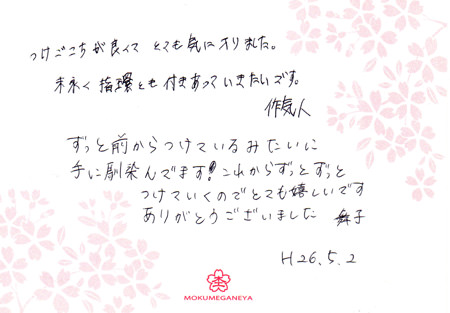 つけごこちが良くて とても気に入りました。
末永く 指環とも 付きあっていきたいです。
ずっと前からつけているみたいに
手に馴染んでます!これからずっとずっと
つけていくのでとても嬉しいです
ありがとうございました 舞子
H26.5.2
MOKUMEGANEYA